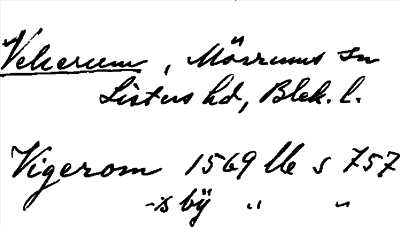 Vekerum, Mörrums sn
Listers hd, Blek. l.
Vigerom 1569 Ub s 757
-s bÿ " "